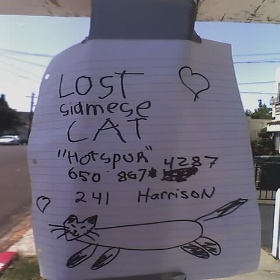 LOST
siamese
CAT
"HOTSPUR"
650 867 4287
241 Harrison